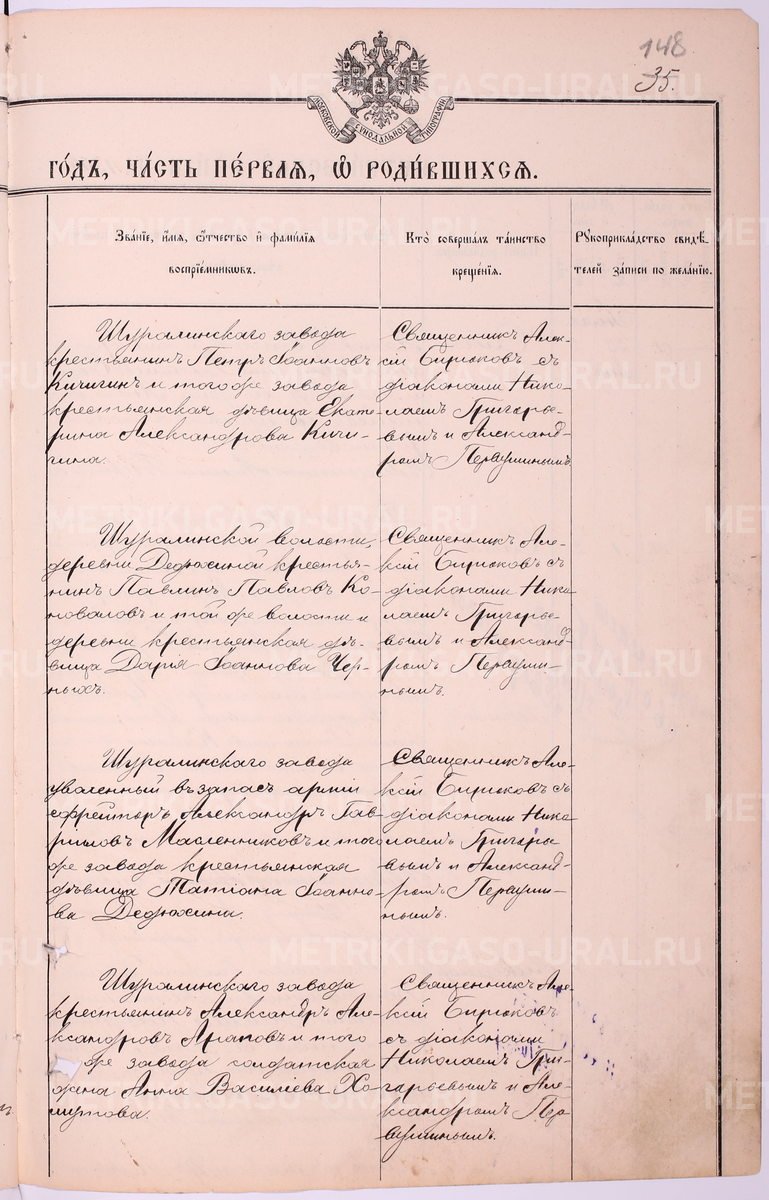 148
35.
МОСКОВСКОЙ СѴНОДАЛЬНОЙ ТИПОГРАФІИ
ГО́ДЪ, ЧА́СТЬ ПЕ́РВАЯ, Ѡ҆ РОДИ́ВШИХСЯ.
Зва́нїе, и҆́мя, ѻ҆́тчество и҆ фами́лїя
воспрїе́мникѡвъ.
Кто̀ соверша́лъ та́инство
креще́нїя.
Рꙋкоприкла́дство свидѣ́-
телей за́писи по жела́нїю.
Шуралинскаго завода
крестьянинъ Петръ Іоанновъ
Кичигинъ и того же завода
крестьянская дѣвица Екате-
рина Александрова Кичи-
гина.
Священникъ Алек-
сій Бирюковъ съ
діаконами Нико-
лаемъ Григорье-
вымъ и Александ-
ромъ Первушинымъ.
Шуралинской волости,
деревни Дедюхиной крестья-
нинъ Павлинъ Павловъ Ко-
новаловъ и той же волости и
деревни крестьянская дѣ-
вица Дарья Іоаннова Чер-
ныхъ.
Священникъ Але-
ксій Бирюковъ съ
діаконами Нико-
лаемъ Григорье-
вымъ и Александ-
ромъ Первуши-
нымъ.
Шуралинскаго завода
уволенный въ запасъ арміи
ефрейторъ Александръ Гав-
риловъ Масленниковъ и того
же завода крестьянская
дѣвица Татіана Іоанно-
ва Дедюхина.
Священникъ Але-
ксій Бирюковъ съ
діаконами Нико-
лаемъ Григорье
вымъ и Александ-
ромъ Первуши-
нымъ.
Шуралинскаго завода
крестьянинъ Александръ Але-
ксандровъ Араповъ и того
же завода солдатская
жена Анна Василіева Хо-
мутова.
Священникъ Але-
ксій Бирюковъ
съ діаконами
Николаемъ Гри-
горьевымъ и Але-
ксандромъ Пер-
вушинымъ.
METRIKI.GASO-URAL.RU